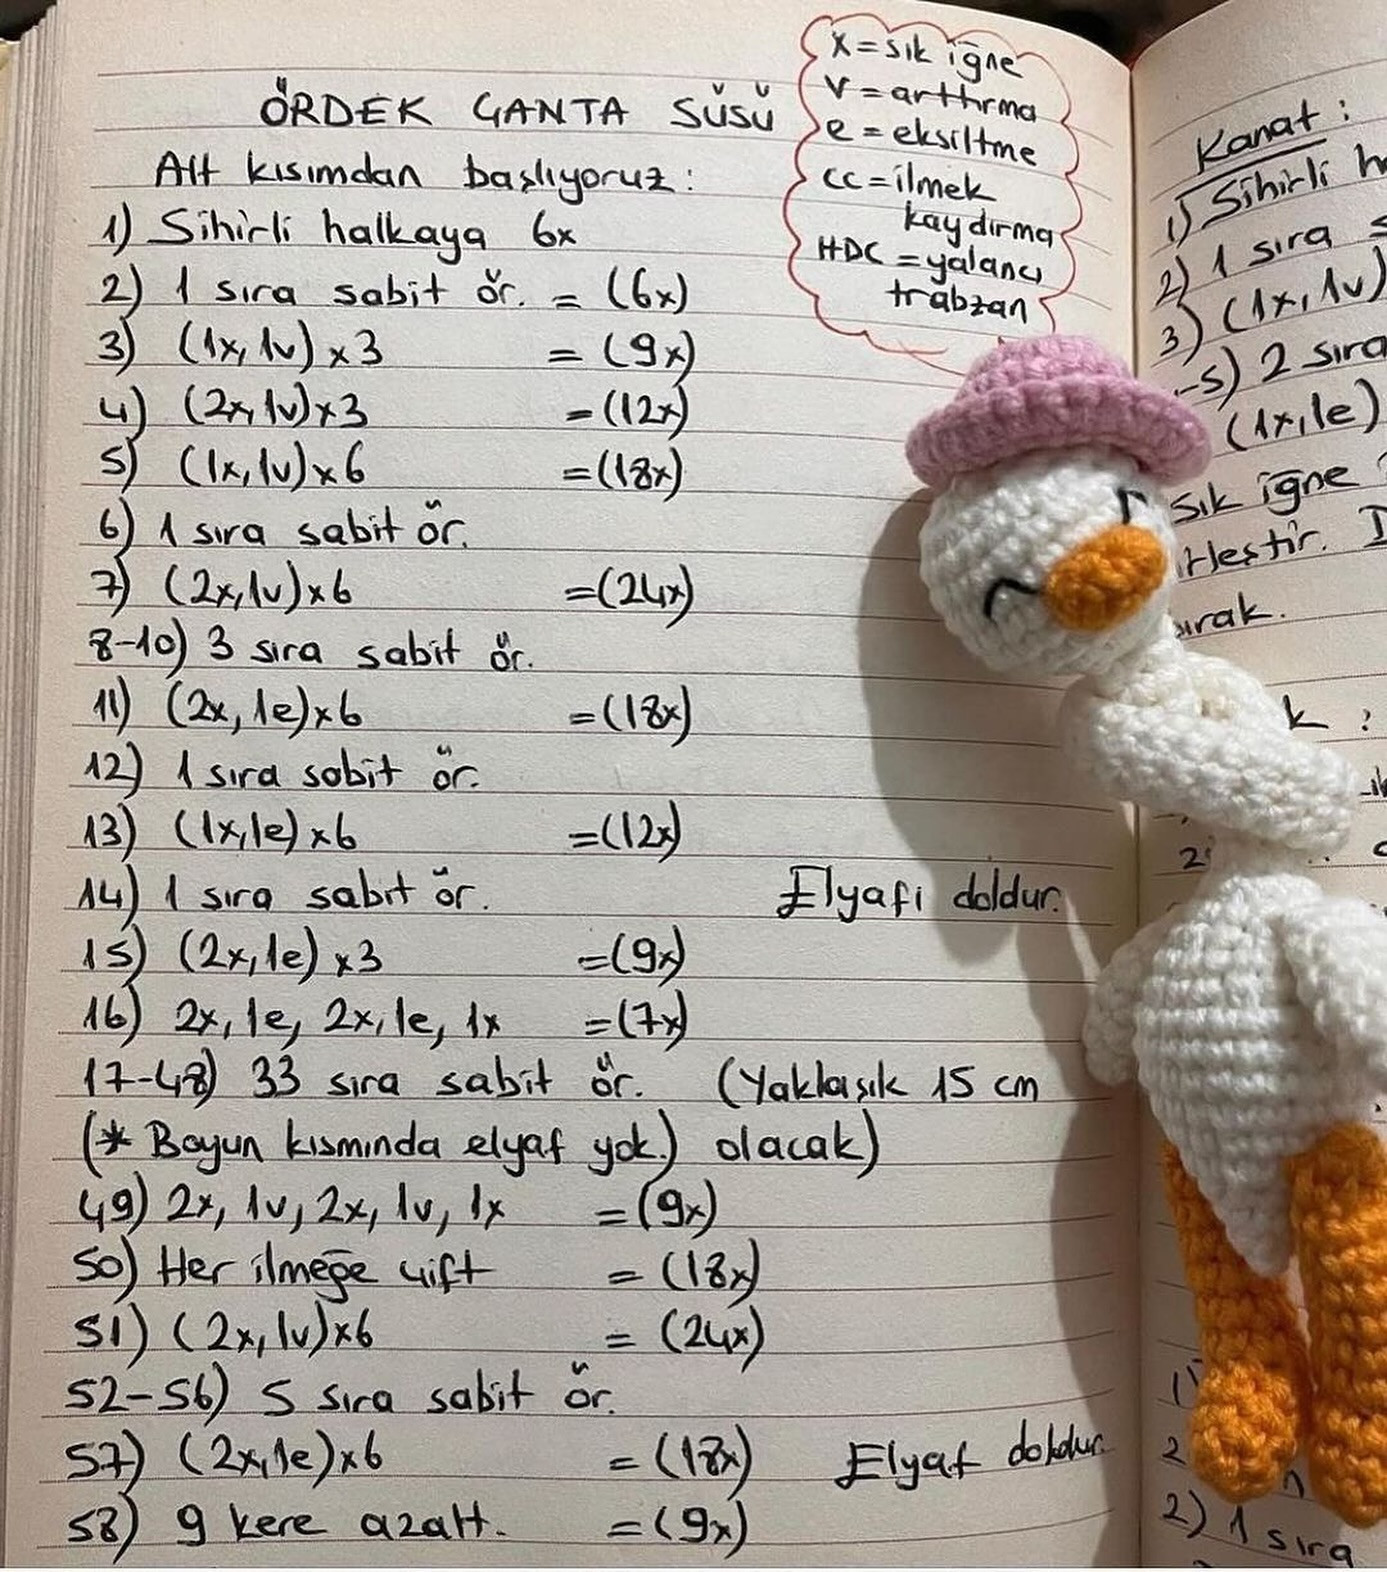 ÖRDEK ÇANTA SÜSÜ
x = sık iğne
v = arttırma
e = eksiltme
cc = ilmek
kaydırma
HDC = yalancı
trabzan
Alt kısımdan başlıyoruz:
1) Sihirli halkaya 6x
2) 1 sıra sabit ör. = (6x)
3) (1x, 1v) x 3 = (9x)
4) (2x, 1v) x 3 = (12x)
5) (1x, 1v) x 6 = (18x)
6) 1 sıra sabit ör.
7) (2x, 1v) x 6 = (24x)
8-10) 3 sıra sabit ör.
11) (2x, 1e) x 6 = (18x)
12) 1 sıra sabit ör.
13) (1x, 1e) x 6 = (12x)
14) 1 sıra sabit ör. Elyafi doldur.
15) (2x, 1e) x 3 = (9x)
16) 2x, 1e, 2x, 1e, 1x = (7x)
17-48) 33 sıra sabit ör. (Yaklaşık 15 cm
(* Boyun kısmında elyaf yok.) olacak)
49) 2x, 1v, 2x, 1v, 1x = (9x)
50) Her ilmeğe çift = (18x)
51) (2x, 1v) x 6 = (24x)
52-56) 5 sıra sabit ör.
57) (2x, 1e) x 6 = (18x) Elyaf doldur.
58) 9 kere azalt. = (9x)
Kanat:
1) Sihirli
2) 1 sıra
3) (1x, 1v)
-5) 2 sıra
(1x, 1e)
Sık iğne
2) 1 sıra